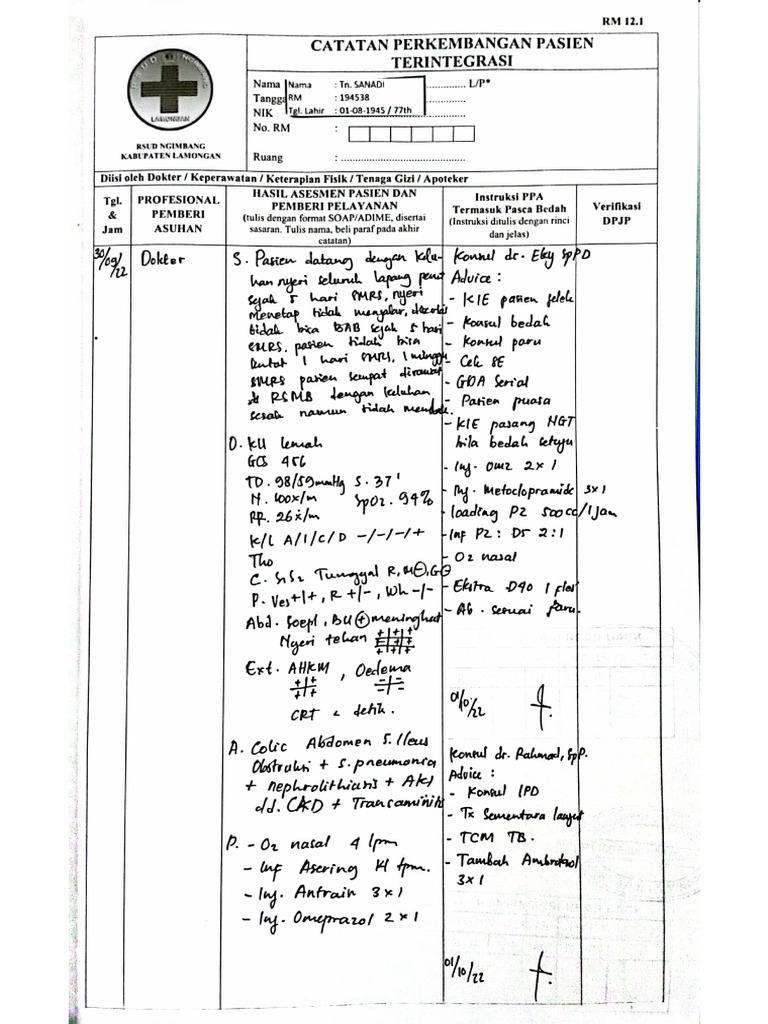 RM 12.1
CATATAN PERKEMBANGAN PASIEN
TERINTEGRASI
RSUD NGIMBANG
LAMONGAN
RSUD NGIMBANG
KABUPATEN LAMONGAN
Nama Nama : Tn. SANADI ............ L/P*
Tangga RM : 194538 ............
NIK Tgl. Lahir : 01-08-1945 / 77th ............
No. RM :
Ruang : ............................................
Diisi oleh Dokter / Keperawatan / Keterapian Fisik / Tenaga Gizi / Apoteker
Tgl.
&
Jam
PROFESIONAL
PEMBERI
ASUHAN
HASIL ASESMEN PASIEN DAN
PEMBERI PELAYANAN
(tulis dengan format SOAP/ADIME, disertai
sasaran. Tulis nama, beli paraf pada akhir
catatan)
Instruksi PPA
Termasuk Pasca Bedah
(Instruksi ditulis dengan rinci
dan jelas)
Verifikasi
DPJP
30/09/22
Dokter
S. Pasien datang dengan kelu-
han nyeri seluruh lapang perut
sejak 5 hari SMRS, nyeri
menetap tidak menjalar, disertai
tidak bisa BAB sejak 5 hari
SMRS, pasien tidak bisa
kentut 1 hari SMRS, 1 minggu
SMRS pasien sempat dirawat
di RSMB dengan keluhan
sesak namun tidak
O. KU lemah
GCS 456
TD. 98/59 mmHg S. 37'
N. 100x/m SpO2. 94%
RR. 26x/m
K/L A/I/C/D -/-/-/+
Tho
C. S1S2 Tunggal R, M⊖, G⊖
P. Ves+/+, R +/-, Wh -/-
Abd. Soepl, BU ⊕ meningkat
Nyeri tekan +++ +++ +++
Ext. AHKM ++ ++, Oedema -- --
CRT < detik.
A. Colic Abdomen S. Ileus
Obstruksi + S. pneumonia
+ nephrolithiasis + AKI
dd. CKD + Transaminitis
P. - O2 nasal 4 lpm
- Inf Asering 14 tpm.
- Inj. Antrain 3x1
- Inj. Omeprazol 2x1
Konsul dr. Eky SpPD
Advice :
- KIE pasien jelek
- Konsul bedah
- Konsul paru
- Cek SE
- GDA Serial
- Pasien puasa
- KIE pasang NGT
bila bedah setuju
- Inj. Omz 2x1
- Inj. Metoclopramide 3x1
- loading PZ 500cc/1jam
- Inf PZ : D5 2:1
- O2 nasal
- Ekstra D40 1 fles
- Ab. sesuai paru.
01/10/22
Konsul dr. Rahmad, SpP.
Advice :
- Konsul IPD
- Tx Sementara lanjut
- TCM TB.
- Tambah Ambroxol
3x1
01/10/22